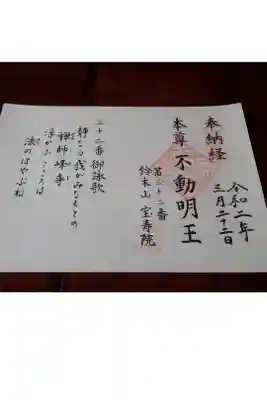 令和二年
三月二十二日
奉納経
本尊 不動明王
第三十二番
鈴木山 宝寿院
三十二番御詠歌
静かなる我がみなもとの
禅師峰寺
浮かぶこころは
法のはやぶね